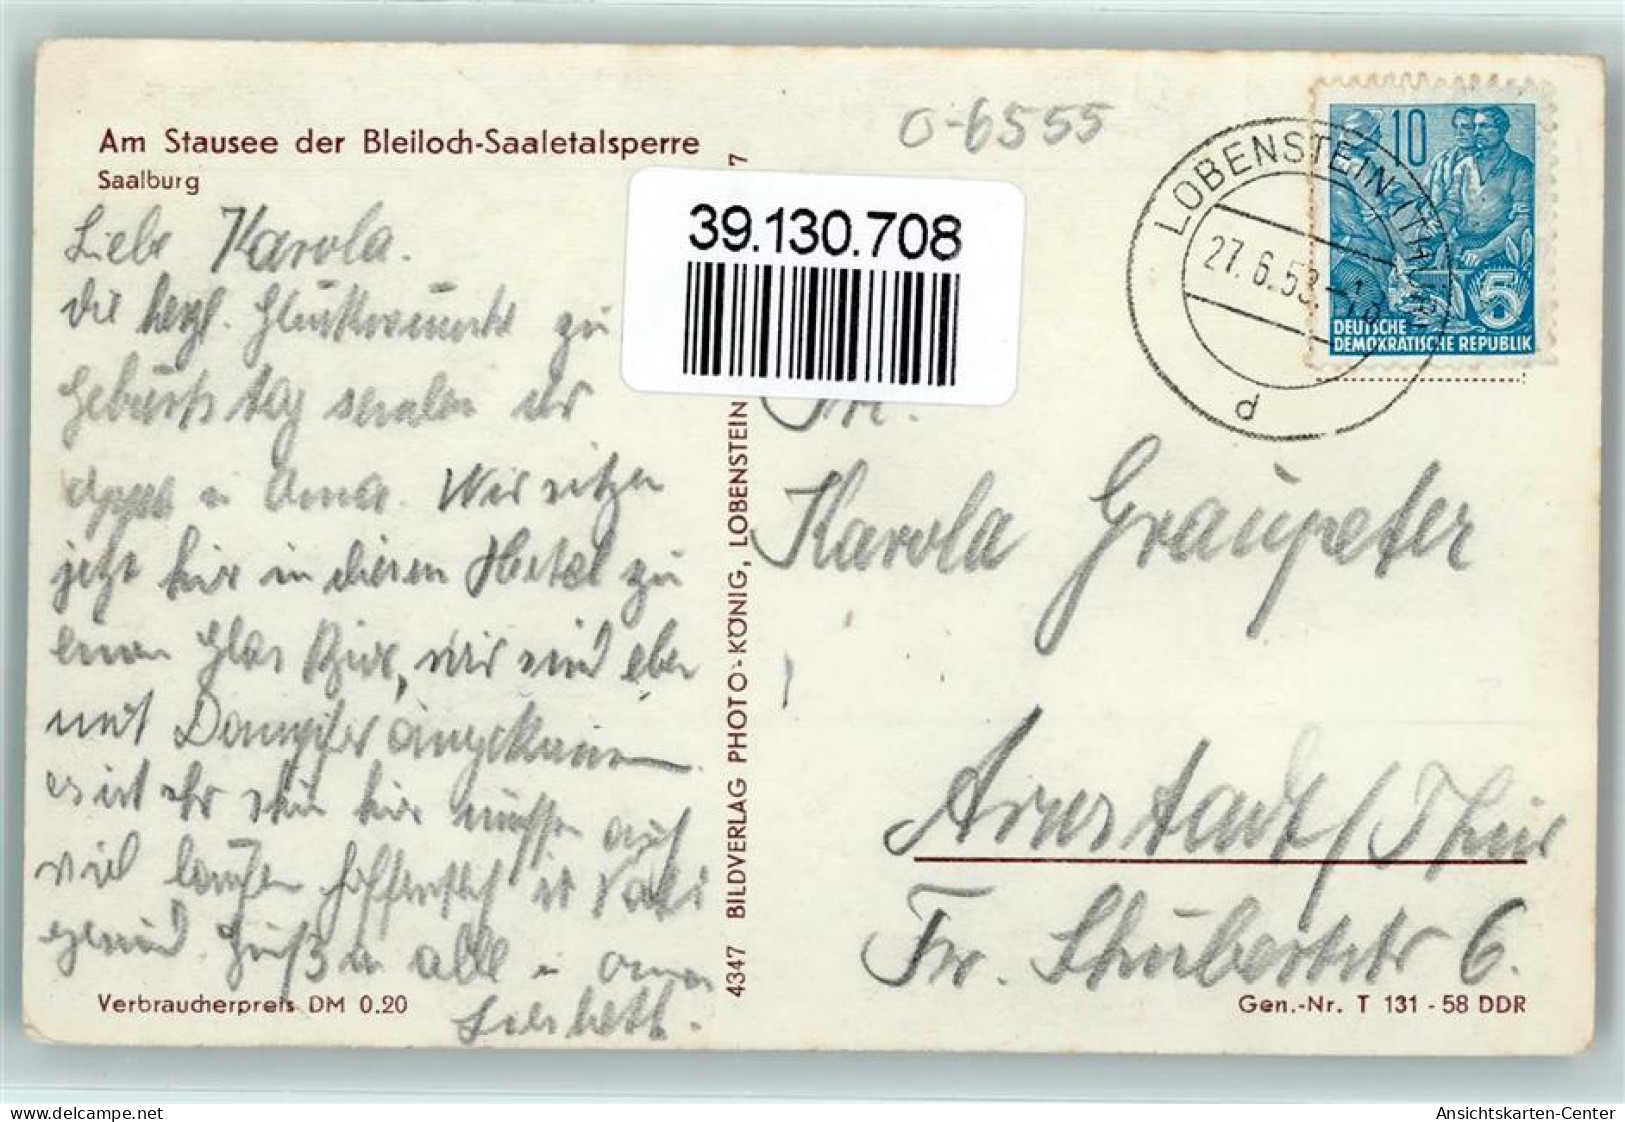 Am Stausee der Bleiloch-Saaletalsperre
Saalburg
O-6555
39.130.708
LOBENSTEIN (THÜR)
27.6.58.
d
10
5
DEUTSCHE
DEMOKRATISCHE REPUBLIK
Liebe Karola.
die herzl. Glückwünsche zu
Geburtstag senden dir
Oppa u Oma. Wir sitzen
jetzt hier in diesen Hotel zu
einen Glas Bier, wir sind eben
mit Dampfer angekommen
es ist sehr schön hier müssen auch
viel laufen hoffentlich ist Vati
gesund. Grüße an alle u oma
Liesbeth.
Verbraucherpreis DM 0.20
4347 BILDVERLAG PHOTO-KÖNIG, LOBENSTEIN 7
Fr.
Karola Graupeter
Arnstadt / Thür
Fr. Schubertstr 6.
Gen.-Nr. T 131 - 58 DDR
www.delcampe.net
Ansichtskarten-Center